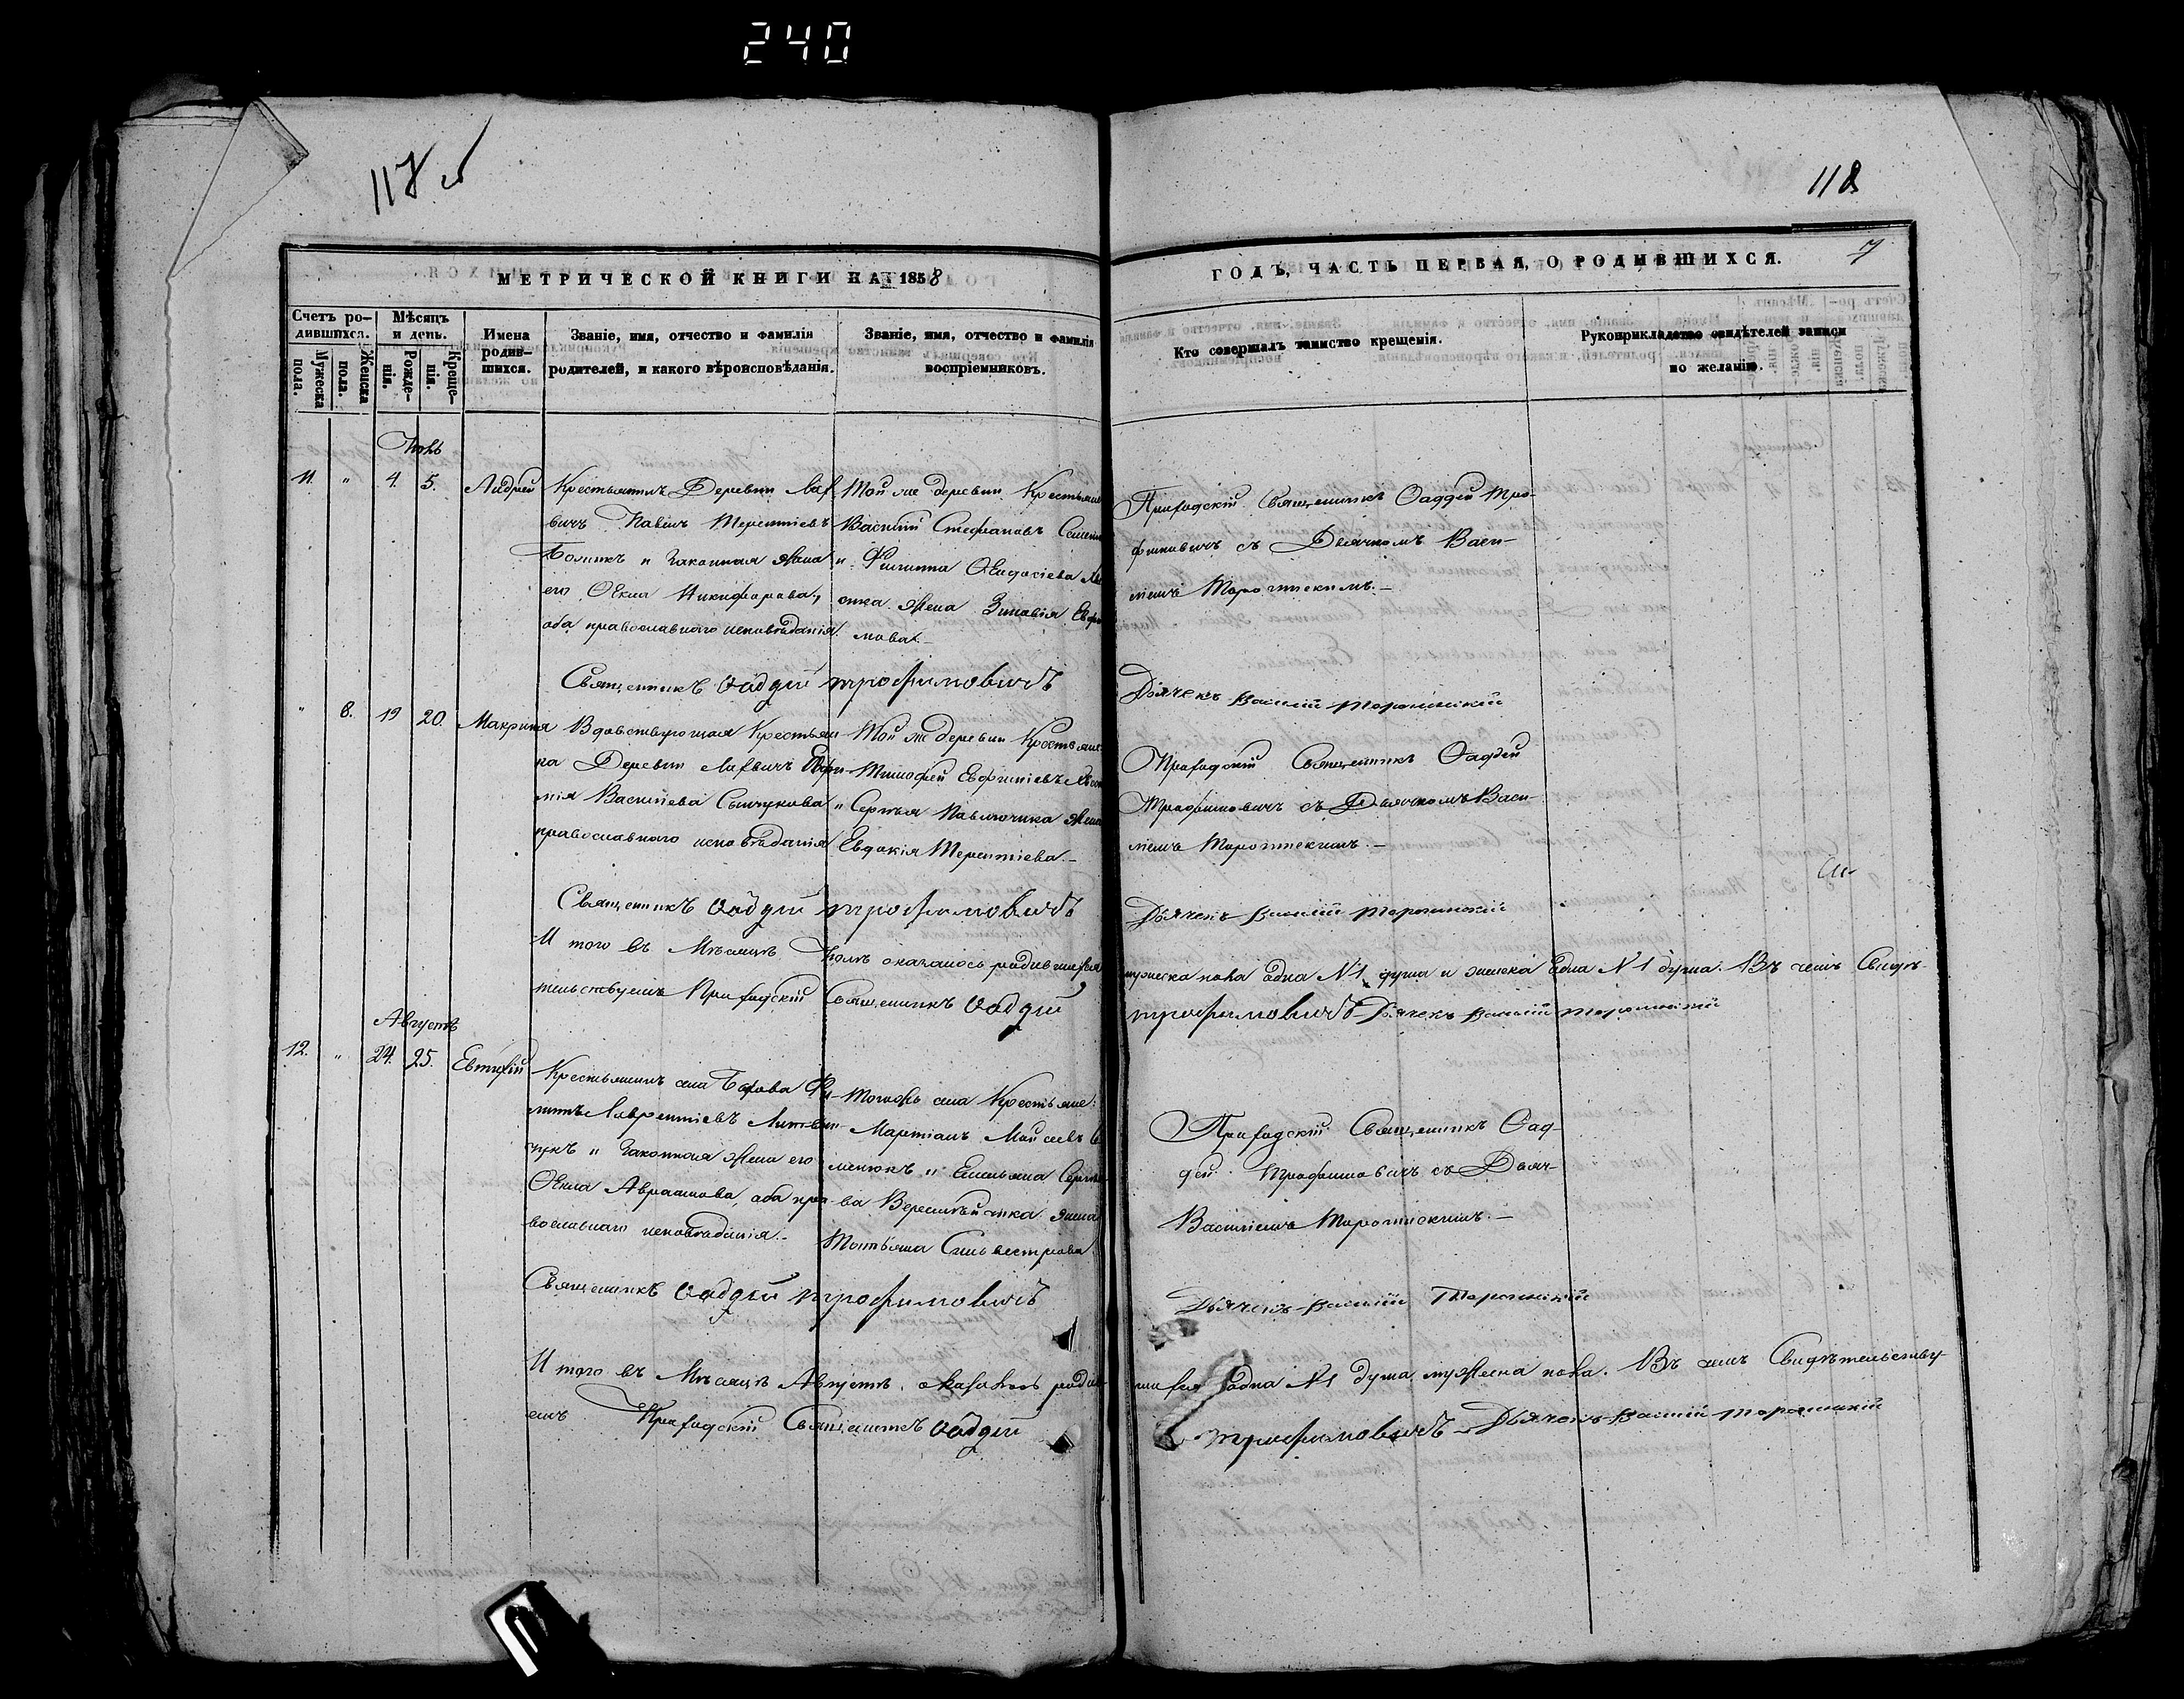 240
117 об
118
МЕТРИЧЕСКОЙ КНИГИ НА 1858
ГОДЪ, ЧАСТЬ ПЕРВАЯ, О РОДИВШИХСЯ.
7
Счетъ ро-
дившихся.
Мужеска
пола.
Женска
пола.
Мѣсяцъ
и день.
Рожде-
нія.
Креще-
нія.
Имена
родив-
шихся.
Званіе, имя, отчество и фамилія
родителей, и какого вѣроисповѣданія.
Званіе, имя, отчество и фамилія
воспріемниковъ.
Кто совершалъ таинство крещенія.
Рукоприкладство свидѣтелей записи
по желанію.
Іюль
11. " 4. 5. Андрей
Крестьянинъ Деревни
Павелъ Терентіевъ
и законная жена
его Ѳекла Никифорова,
оба православнаго исповѣданія.
Той же деревни Крестьянинъ
Василій Стефановъ
и Филиппа Ѳеодосіева
жена Зиновія
мова.
Приходскій Священникъ Фаддей Тро-
фимовичъ съ Дьячкомъ Васи-
ліемъ Торочинскимъ.-
Священникъ Фаддей Трофимовичъ
Дьячекъ Василій Торочинскій
" 8. 19 20. Макрина
Вдовствующая Крестьян-
ка Деревни Евфи-
мія Василіева
православнаго исповѣданія
Той же деревни Крестьяне
Тимофей Евфиміевъ
и Сергѣя Павлючика жена
Евдокія Терентіева.-
Приходскій Священникъ Фаддей
Трофимовичъ съ Дьячкомъ Васи-
ліемъ Торочинскимъ.-
Священникъ Фаддей Трофимовичъ
Дьячекъ Василій Торочинскій
И того въ Мѣсяцѣ Іюлѣ оказалось родившихся
мужеска пола одна №1 душа и женска одна №1 душа. Въ чемъ Свидѣ-
тельствуемъ Приходскій Священникъ Фаддей
Трофимовичъ Дьячекъ Василій Торочинскій
Августъ
12. " 24. 25. Евтихій
Крестьянинъ села Фи-
липпъ Лаврентіевъ Литвин-
чукъ и законная жена его
Ѳекла Авраамова, оба пра-
вославнаго исповѣданія.-
Тогожъ села Крестьяне:
Мартіанъ Моисеевъ
менюкъ и Емельяна
ва жена
Татьяна Сильвестрова.
Приходскій Священникъ Фад-
дей Трофимовичъ съ Дьяч-
Василіемъ Торочинскимъ.-
Священникъ Фаддей Трофимовичъ
Дьячекъ Василій Торочинскій
И того въ Мѣсяцѣ Августѣ, оказалось родив-
шихся одна №1 душа мужеска пола. Въ чемъ Свидѣтельству-
емъ Приходскій Священникъ Фаддей
Трофимовичъ Дьячекъ Василій Торочинскій